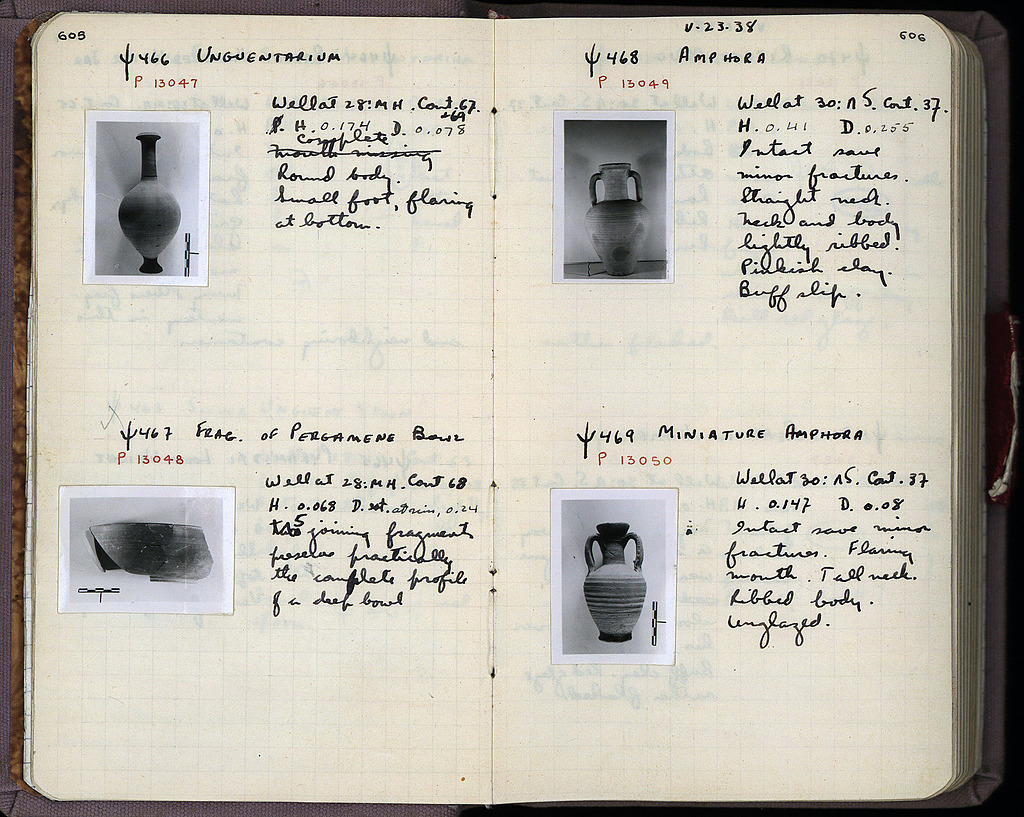 605
ψ466 UNGUENTARIUM
P 13047
Well at 28:MH. Cont. 67.
+69
P. H. 0.174 D. 0.078
complete
mouth missing
Round body.
Small foot, flaring
at bottom.
ψ467 FRAG. OF PERGAMENE BOWL
P 13048
Well at 28:MH. Cont 68
H. 0.068 D. est. at rim, 0.24
5
two joining fragments
preserve practically
the complete profile
of a deep bowl
V-23-38
606
ψ468 AMPHORA
P 13049
Well at 30: ΛS. Cont. 37.
H. 0.41 D. 0.255
Intact save
minor fractures.
Straight neck.
Neck and body
lightly ribbed.
Pinkish clay.
Buff slip.
ψ469 MINIATURE AMPHORA
P 13050
Well at 30: ΛS. Cont. 37
H. 0.147 D. 0.08.
Intact save minor
fractures. Flaring
mouth. Tall neck.
Ribbed body.
Unglazed.